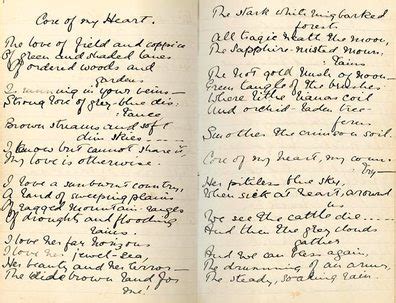 Core of my Heart.
The love of field and coppice
Of green and shaded lanes
Of ordered woods and
gardens
Is running in your veins —
Strong love of grey-blue dis-
tance
Brown streams and soft
dim skies ----
I know but cannot share it,
My love is otherwise.
I love a sunburnt country,
A land of sweeping plains
Of ragged mountain ranges
Of droughts and flooding
rains
I love her far horizons
I love her jewel-sea,
Her beauty and her terror —
The wide brown land for
me!
The stark white ringbarked
forests
All tragic 'neath the moon,
The Sapphire-misted moun-
tains
The hot gold hush of noon —
Green tangle of the brushes
Where lithe lianas coil
And orchid-laden tree-
ferns
Smother the crimson soil.
Core of my heart, my coun-
try —
Her pitiless blue sky,
When sick at heart, around
us
We see the cattle die ----
And then the grey clouds
gather
And we can bless again,
The drumming of an army,
The steady, soaking rain.